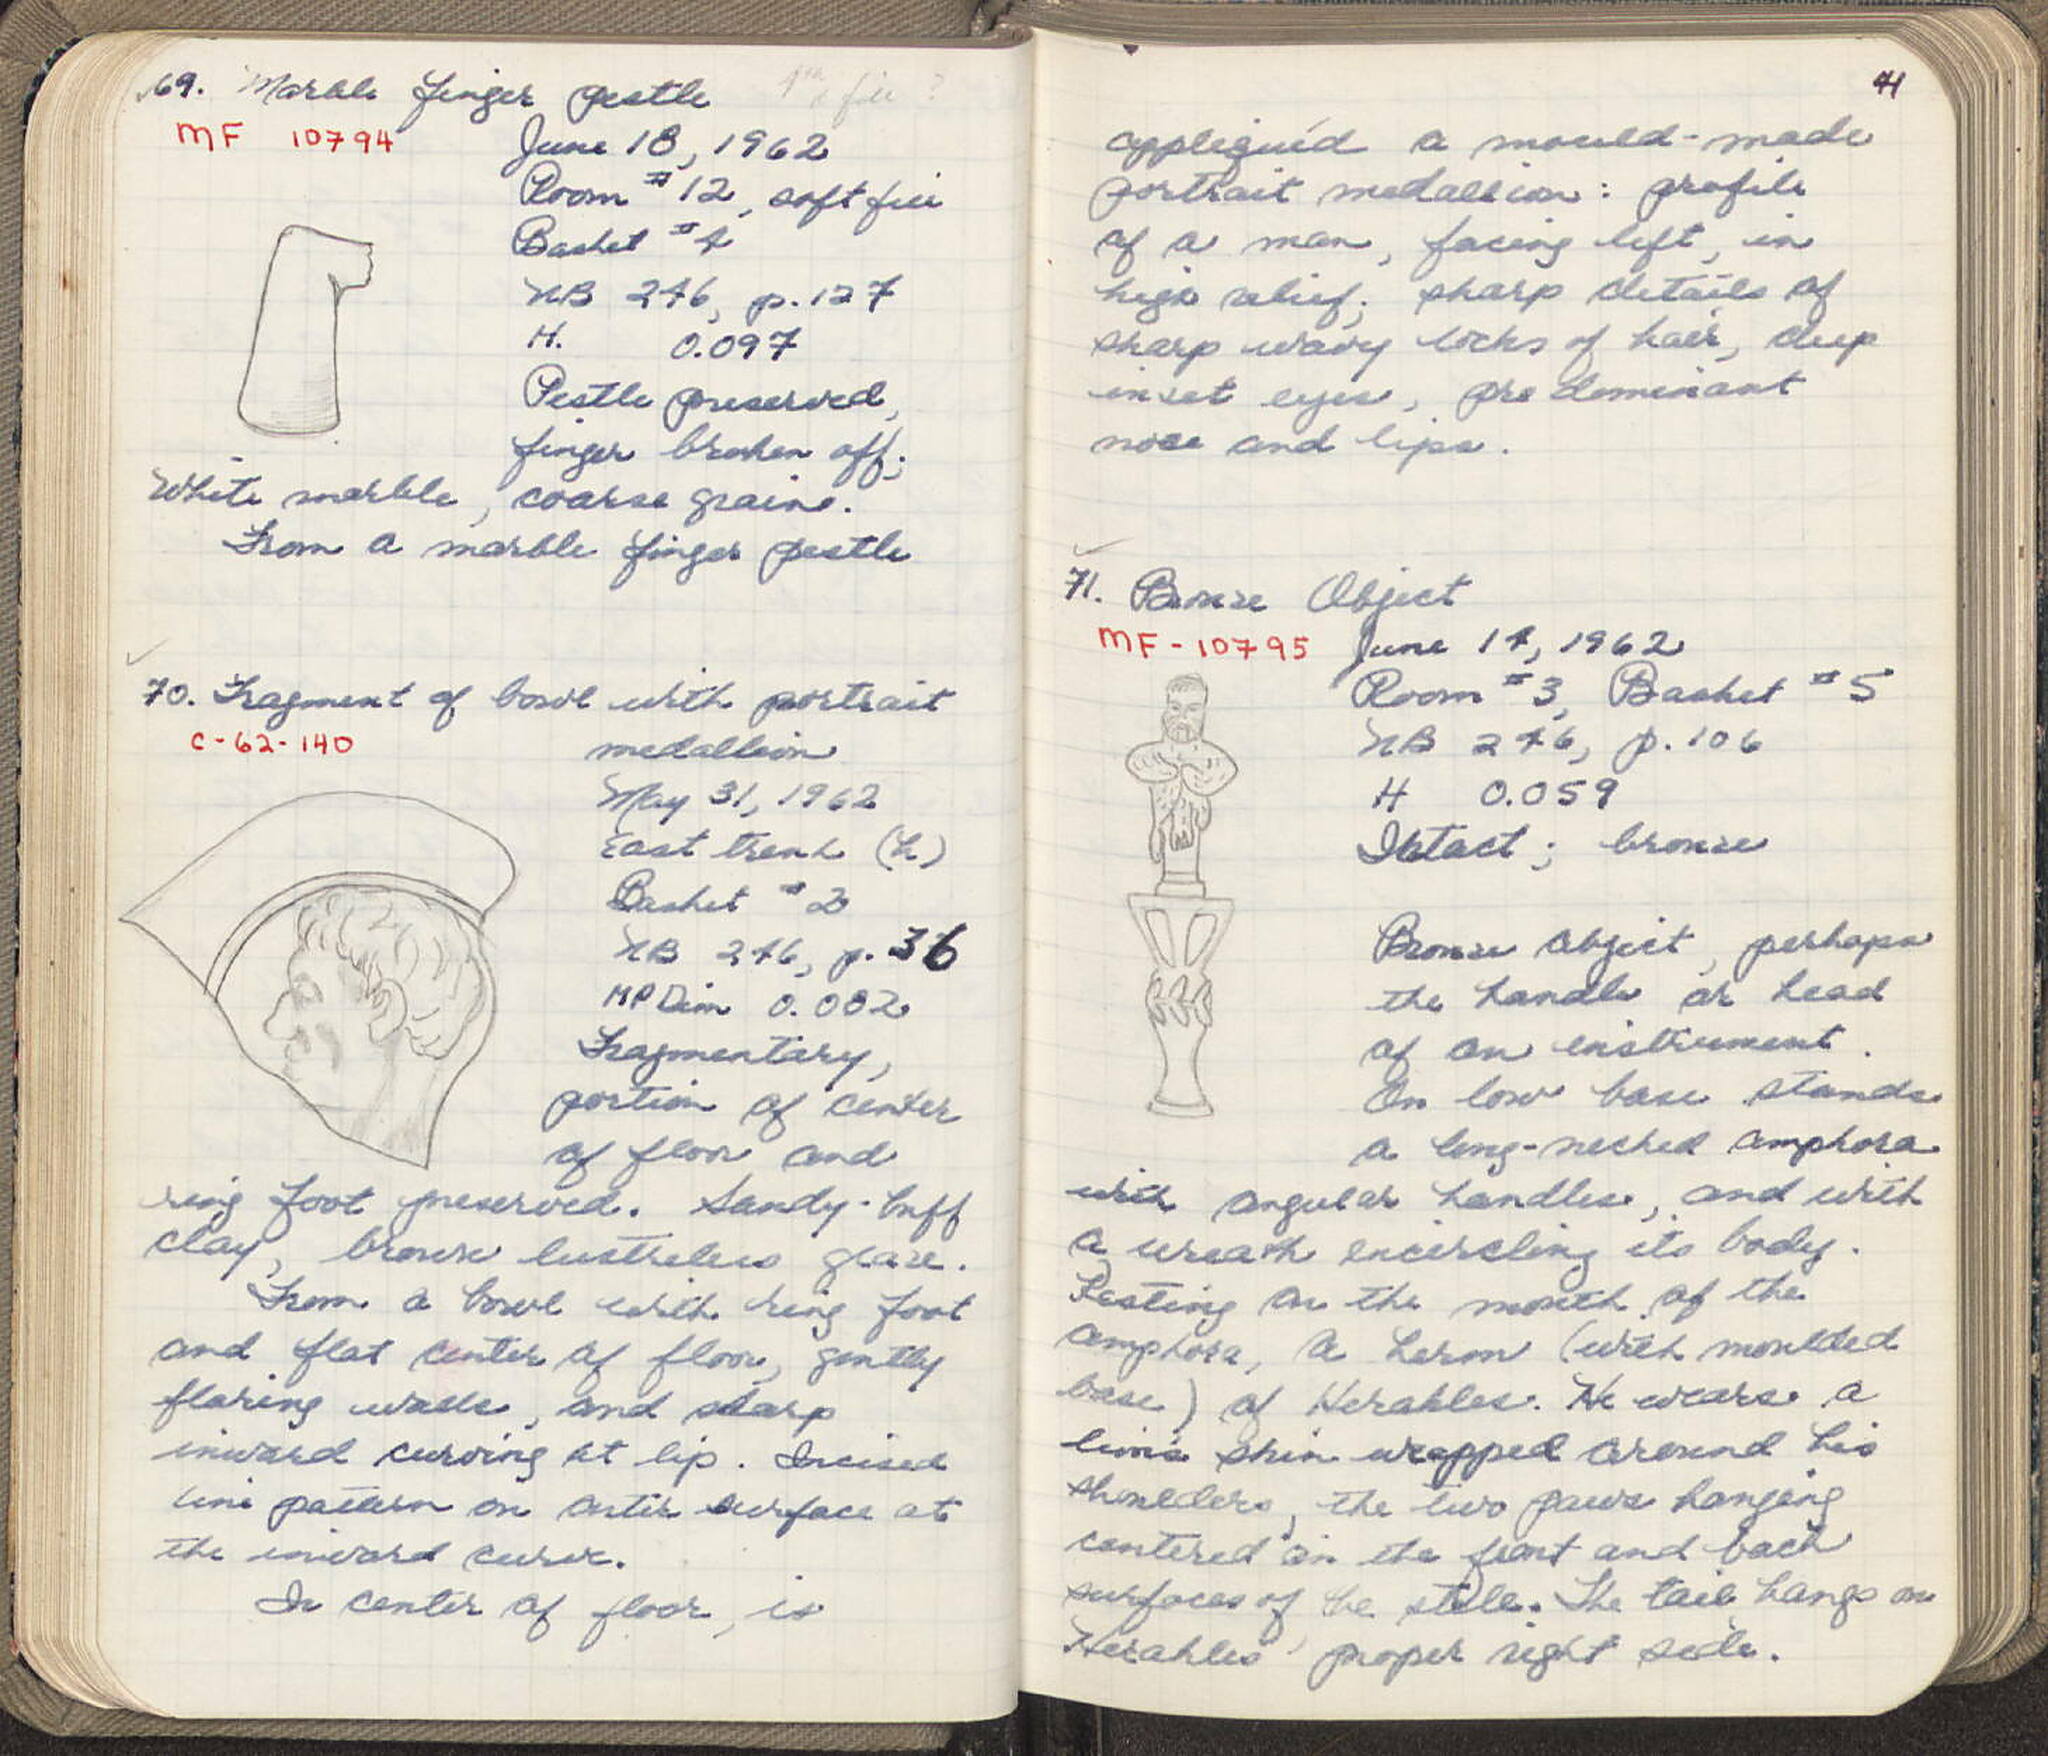 69. Marble finger pestle
MF 10794
June 18, 1962
Room #12, soft fill
Basket #4
NB 246, p. 127
H. 0.097
Pestle preserved,
finger broken off;
White marble, coarse grain.
From a marble finger pestle
70. Fragment of bowl with portrait
C-62-140
medallion
May 31, 1962
East trench
Basket #2
NB 246, p. 36
MP Dim 0.082
Fragmentary,
portion of center
of floor and
ring foot preserved. Sandy-buff
clay, brown lustreless glaze.
From a bowl with ring foot
and flat center of floor, gently
flaring walls, and sharp
inward curving at lip. Incised
line pattern on outer surface at
the inward curve.
In center of floor, is
71
appliquéd a mould-made
portrait medallion: profile
of a man, facing left, in
high relief; sharp details of
sharp wavy locks of hair, deep
inset eyes, predominant
nose and lips.
71. Bronze Object
MF-10795
June 14, 1962
Room #3, Basket #5
NB 246, p. 106
H 0.059
Intact; bronze
Bronze object, perhaps
the handle or head
of an instrument.
On low base stands
a long-necked amphora
with angular handles, and with
a wreath encircling its body.
Resting on the mouth of the
amphora, a herm (with moulded
base) of Herakles. He wears a
lion's skin wrapped around his
shoulders, the two paws hanging
centered on the front and back
surfaces of the stele. The tail hangs on
Herakles' proper right side.